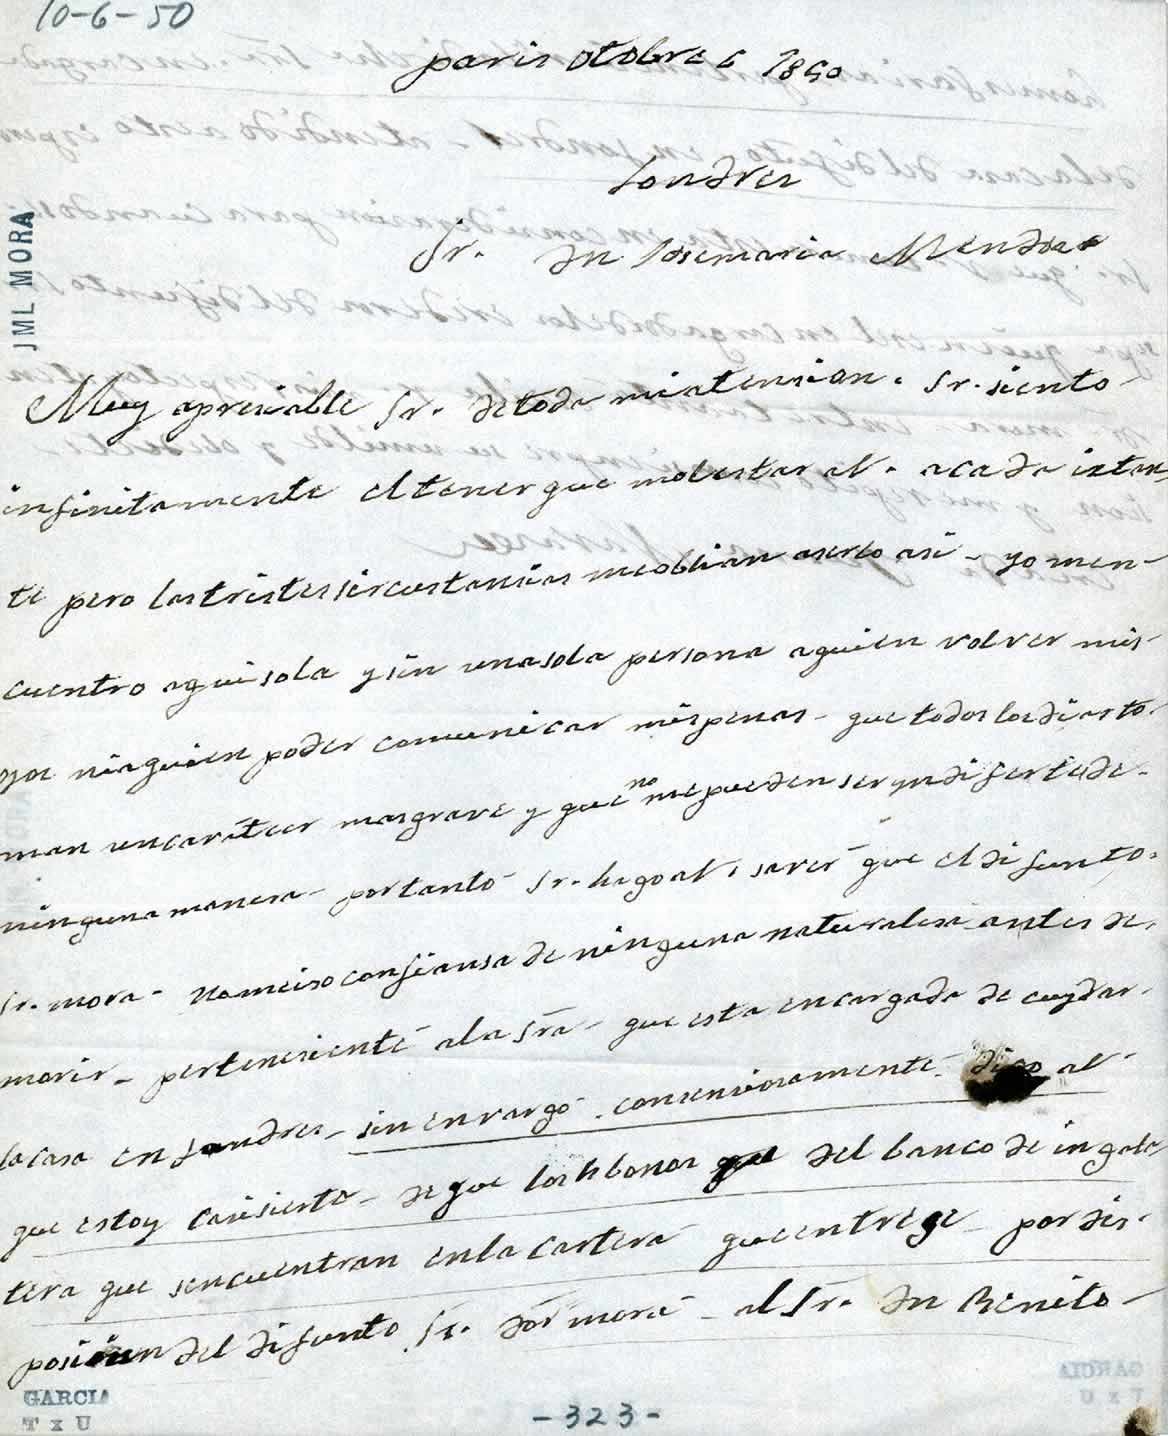 10-6-50
paris otobre 6 1850
Londres
Sr. Dn Josemaria Mendoza
JML MORA
Muy apresiable Sr. detoda miatension. Sr. siento
infinitamente eltener que molestar al. acada istan
te pero lastristessircustansias meoblian aserlo asi - yo men-
cuentro aqui sola y sin unasola persona aquien volver mis
ojos niaquien poder comunicar mispenas - que todos losdiasto-
man uncarátter masgrave y que no mepueden ser yndifertede-
ningunamanera - portanto - Sr. hagoal. saver que eldifunto.
Sr. mora - nomeiso confiansa de ninguna naturalesa antes de.
morir - perteneciente ala Sra - que esta encargada de cuydar-
lacasa en Londres - sin envargo. consensiosamente. digo al
que estoy casisierta - de que los bonos que del banco de ingala
tera que sencuentran enlacartera queentrege por dis-
posicion del difunto Sr. Dor mora - al Sr. Dn Benito -
GARCIA
T x U
-323-